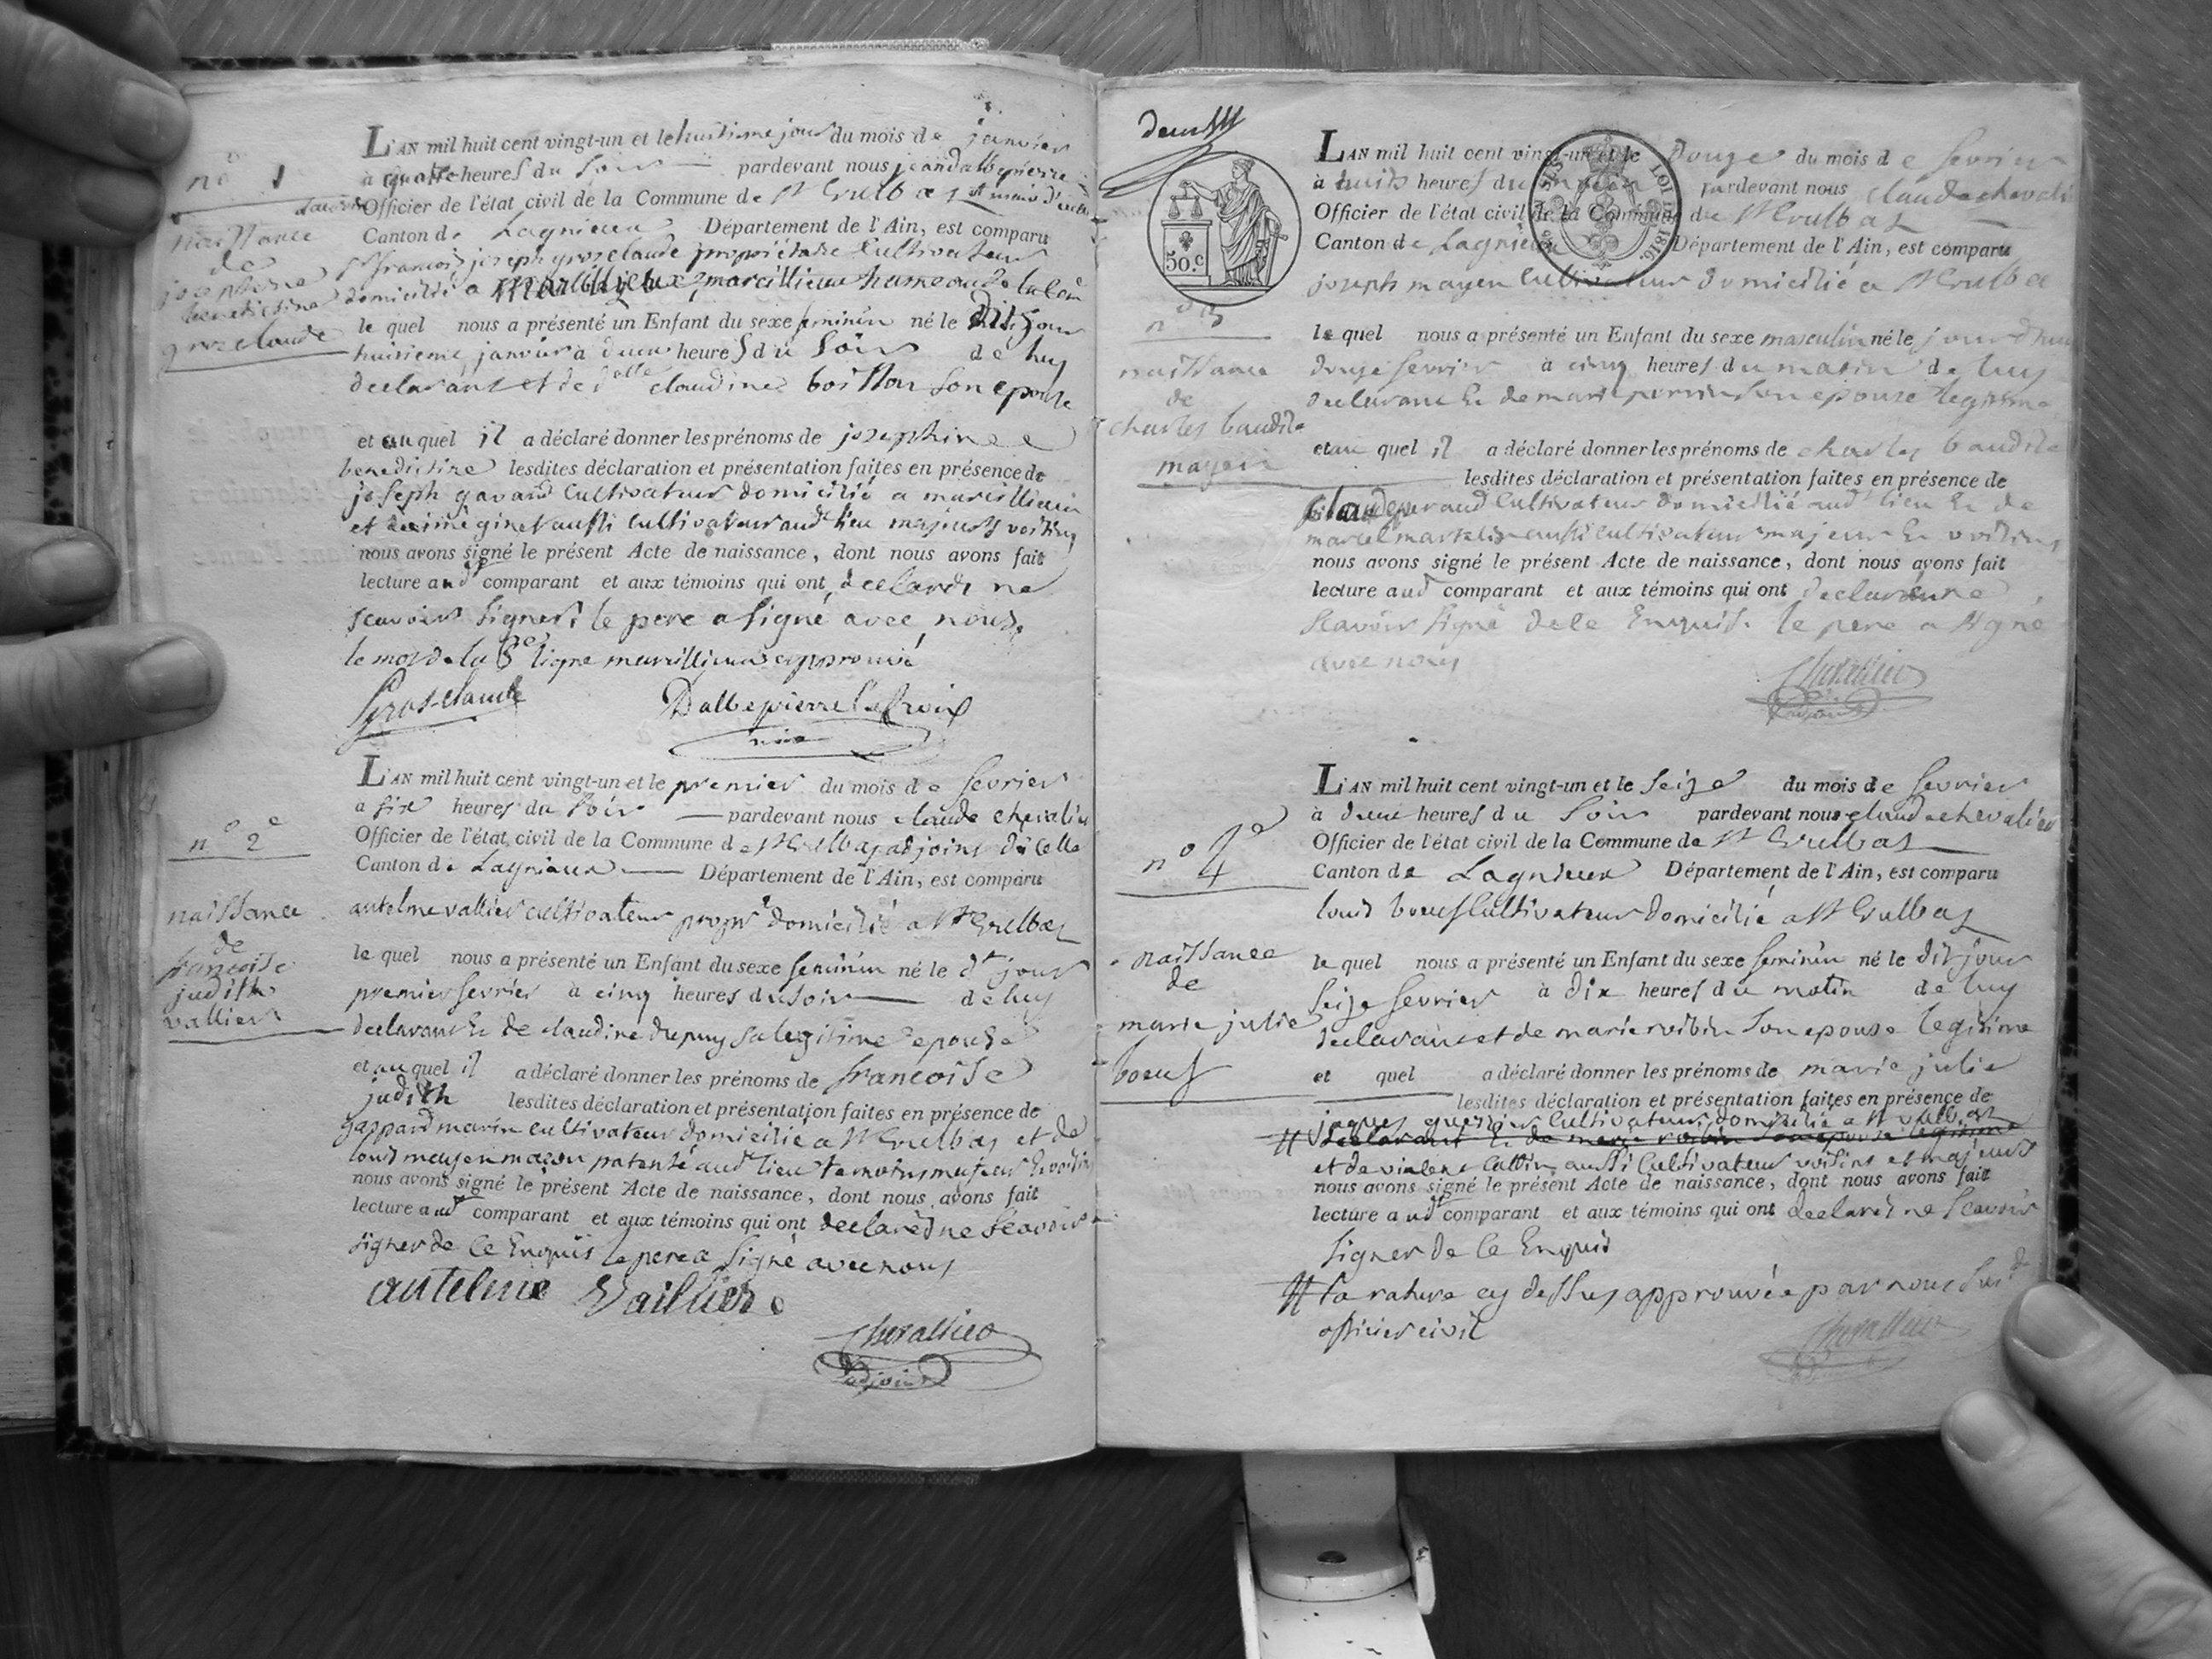 n° 1
naissance
de
josephine
benedictine
grosclaude
L'AN mil huit cent vingt-un et le huitieme jour du mois de janvier
à quatre heures du soir pardevant nous jean dallepierre
Officier de l'état civil de la Commune de St Vulbas
Canton de Lagnieux Département de l'Ain, est comparu
Sr francois joseph grosclaude propriétaire Cultivateur
domicilié a marcillieux hameau de la
le quel nous a présenté un Enfant du sexe feminin né le dit jour
huitieme janvier à deux heures du Soir de luy
declarant et de claudine boisson son epouse
et au quel il a déclaré donner les prénoms de josephine
benedictine lesdites déclaration et présentation faites en présence de
joseph gavard Cultivateur domicilié a marcillieux
et ginet aussi Cultivateur audt lieu majeurs voisins
nous avons signé le présent Acte de naissance, dont nous avons fait
lecture audt comparant et aux témoins qui ont declaré ne
scavoir signer, le pere a signé avec nous,
le mot de la ligne marcillieux approuvé
Grosclaude Dallepierre Lafroix
n° 2e
naissance
de
francoise
judith
vallier
L'AN mil huit cent vingt-un et le premier du mois de fevrier
a six heures du soir pardevant nous claude chevalier
Officier de l'état civil de la Commune de St Vulbas adjoint dicelle
Canton de Lagnieux Département de l'Ain, est comparu
antelme vallier cultivateur domicilié a St Vulbas
le quel nous a présenté un Enfant du sexe feminin né le dt jour
premier fevrier à cinq heures du soir de luy
declarant & de claudine dupuy sa legitime epouse
et au quel il a déclaré donner les prénoms de francoise
judith lesdites déclaration et présentation faites en présence de
gaspard marin cultivateur domicilié a St Vulbas et de
louis mayen macon patenté audt lieu temoins majeurs & voisins
nous avons signé le présent Acte de naissance, dont nous avons fait
lecture audt comparant et aux témoins qui ont declaré ne scavoir
signer de ce Enquis le pere a signé avec nous
antelme Vallier
Chevallier
adjoint
50.c
LOI 1816.
n° 3
naissance
de
charles baudile
mayen
L'AN mil huit cent vingt-un et le douze du mois de fevrier
à huit heures du matin pardevant nous claude chevalier
Officier de l'état civil de la Commune de St Vulbas
Canton de Lagnieux Département de l'Ain, est comparu
joseph mayen Cultivateur domicilié a St Vulbas
le quel nous a présenté un Enfant du sexe masculin né le jour dhui
douze fevrier à cinq heures du matin de luy
declarant & de marie perrin son epouse legitime
et au quel il a déclaré donner les prénoms de charles baudile
lesdites déclaration et présentation faites en présence de
claude peraud Cultivateur domicilié audt lieu & de
marcel martelin aussi cultivateur majeur & voisins
nous avons signé le présent Acte de naissance, dont nous avons fait
lecture audt comparant et aux témoins qui ont declaré ne
scavoir signé de ce Enquis. le pere a signé
avec nous
Chevallier
adjoint
n° 4e
naissance
de
marie julie
boeuf
L'AN mil huit cent vingt-un et le seize du mois de fevrier
à deux heures du soir pardevant nous claude chevalier
Officier de l'état civil de la Commune de St Vulbas
Canton de Lagnieux Département de l'Ain, est comparu
louis boeuf Cultivateur domicilié a St Vulbas
le quel nous a présenté un Enfant du sexe feminin né le dit jour
seize fevrier à dix heures du matin de luy
declarant et de marie son epouse legitime
et quel a déclaré donner les prénoms de marie julie
lesdites déclaration et présentation faites en présence de
jaques Cultivateur domicilié a St Vulbas
declarant & de son epouse legitime
et de aussi Cultivateur voisins et majeurs
nous avons signé le présent Acte de naissance, dont nous avons fait
lecture audt comparant et aux témoins qui ont declaré ne scavoir
signer de ce Enquis
la rature cy dessus approuvée par nous
officier civil
Chevallier